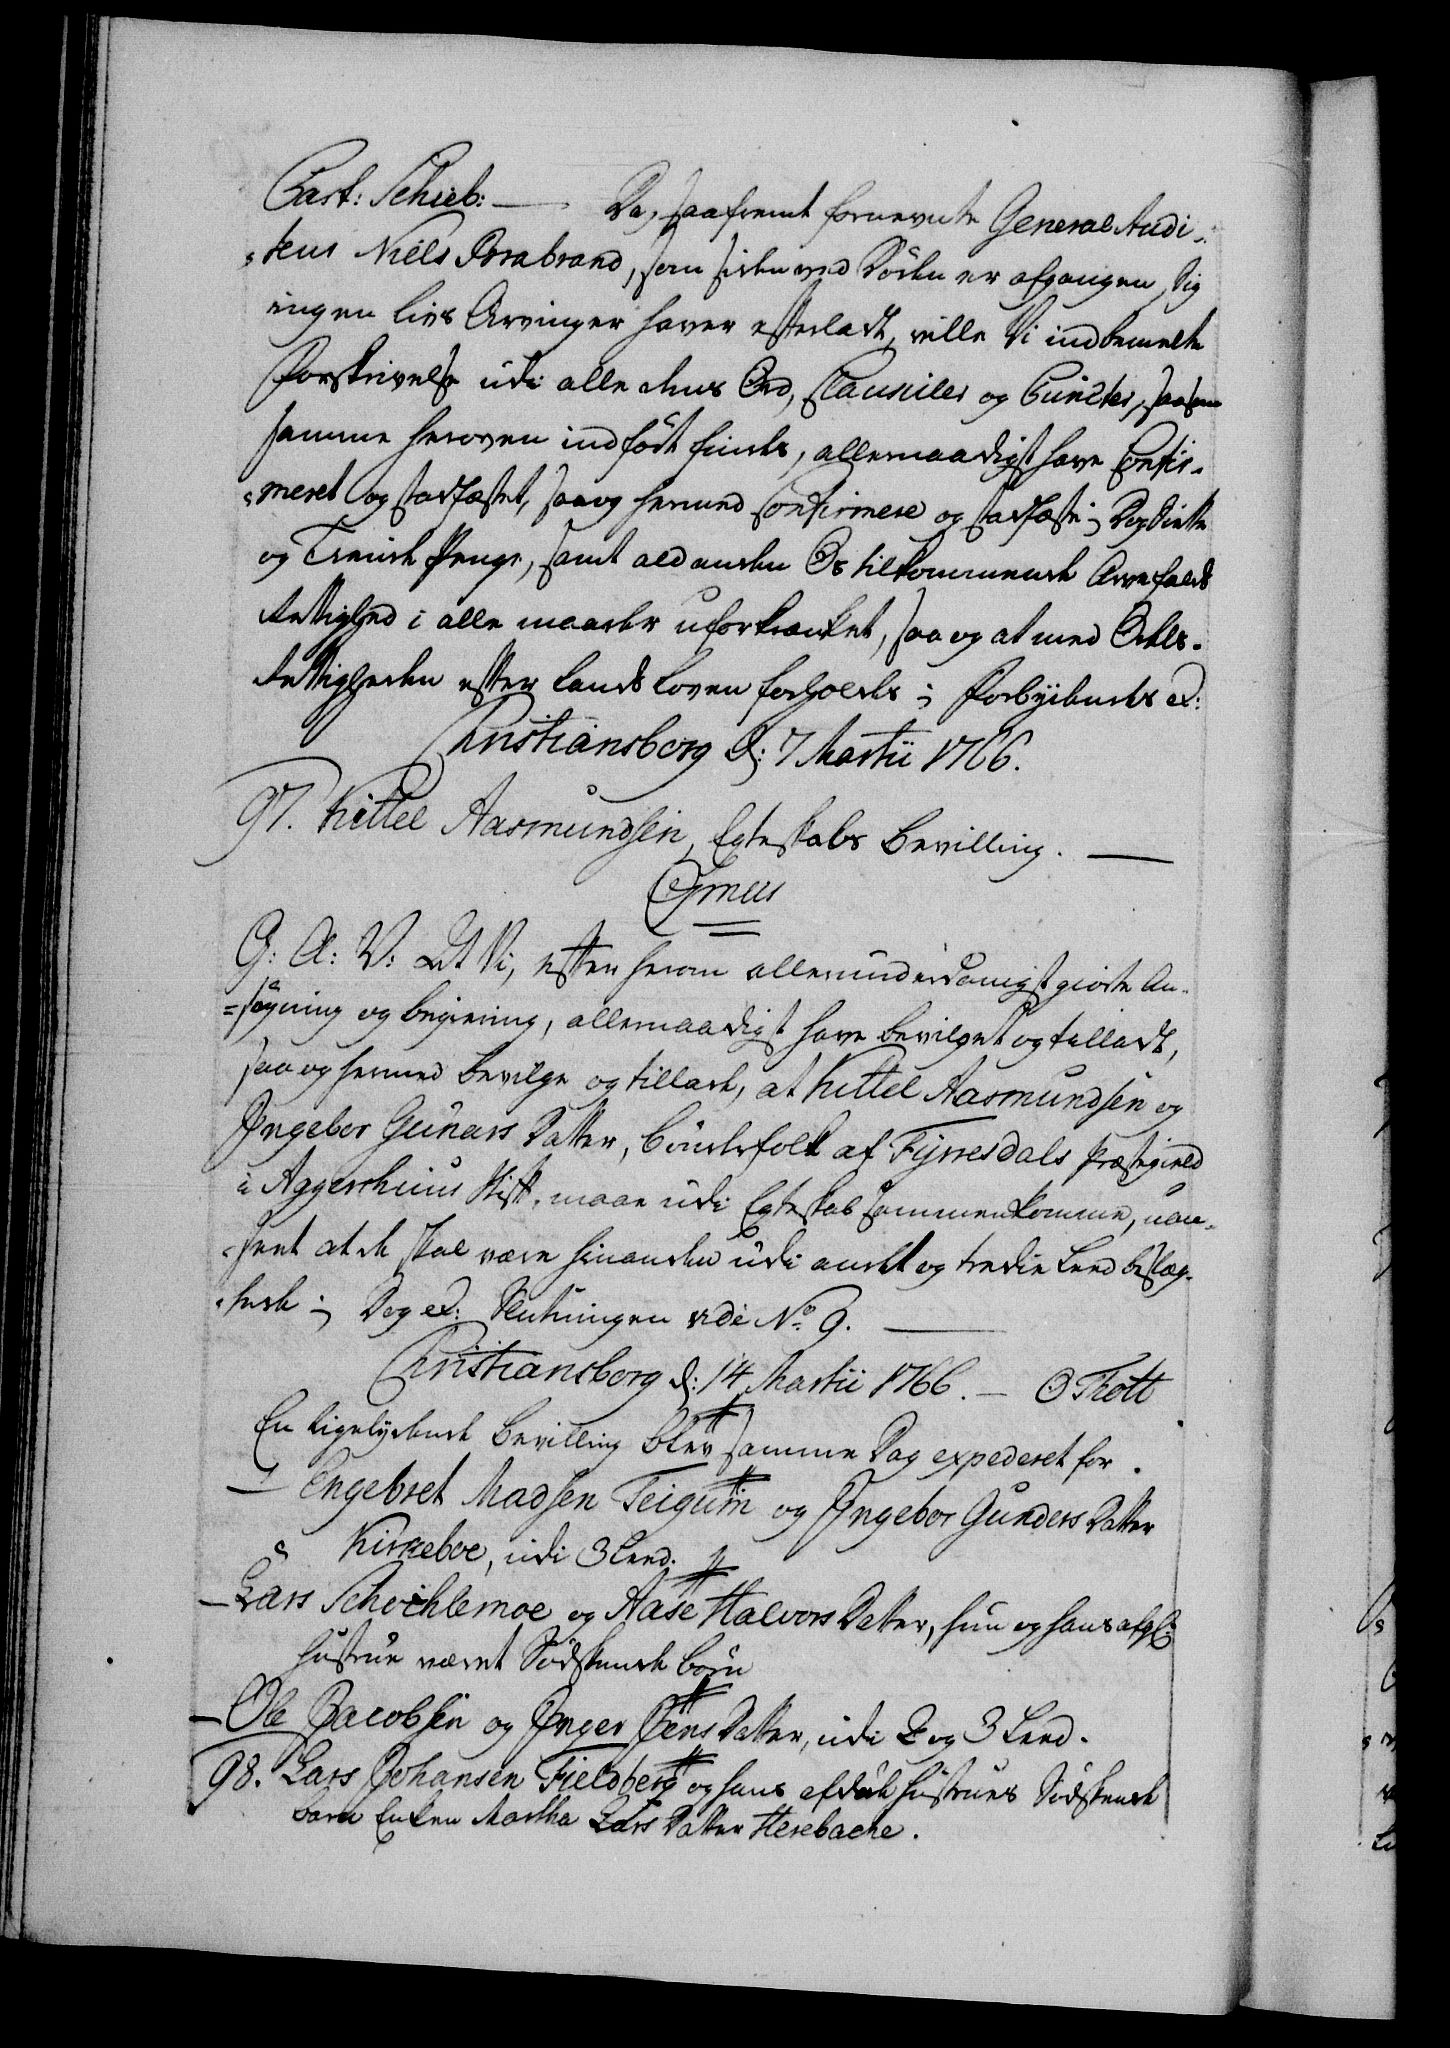 Cast: Schieb: — Da, saafremt fornevnte General Audi-
-teur Niels Brabrand, som siden ved Döden er afgangen, Sig
ingen livs Arvinger haver efterladt, ville Vi indbemelte
Forskrivelse udi alle dens Ord, Clausuler og Puncter, saasom
samme heroven indfört findes, allernaadigst have Confir-
-meret og stadfæstet, saa og hermed Confirmere og stadfæste; Dog Siette
og Tiende Penge, samt ald anden Os tilkommende Arvefalds
Rettighed i alle maader uforkrænket, saa og at med Odels-
Rettigheden efter Lands Loven forholdes; Forbydendes etc:
Christiansborg d: 7 Martii 1766.
97. Kittel Aasmundsen, Egteskabs Bevilling. —
Gives
G: A: V: At Vi, efter herom allerunderdanigst giorte An-
-sögning og begiering, allernaadigst have bevilget og tilladt,
saa og hermed bevilge og tillade, at Kittel Aasmundsen og
Ingebor Gunars Datter, bönderfolk af Fyrresdals Præstegield
i Aggershuus Stift, maae udi Egteskab sammenkomme, uan-
-seet at de skal være hinanden udi andet og tredie Leed beslæg-
-tede; Dog etc: Slutningen vide No 9. —
Christiansborg d: 14 Martii 1766. — O Thott
En ligelydende Bevilling blev samme Dag expederet for
— Engebret Madsen Teigum og Ingebor Gunders Datter
Kirkeboe, udi 3 Leed.
— Lars Schochlemoe og Aase Halvors Datter, hun og hans afgl:
hustrue været Södskende börn
— Ole Jacobsen og Inger Jens Datter, udi 2 og 3 Leed.
98. Lars Johansen Fieldberg og hans afdöde hustrues Södskende
barn Enken Martha Lars Datter Herebache.